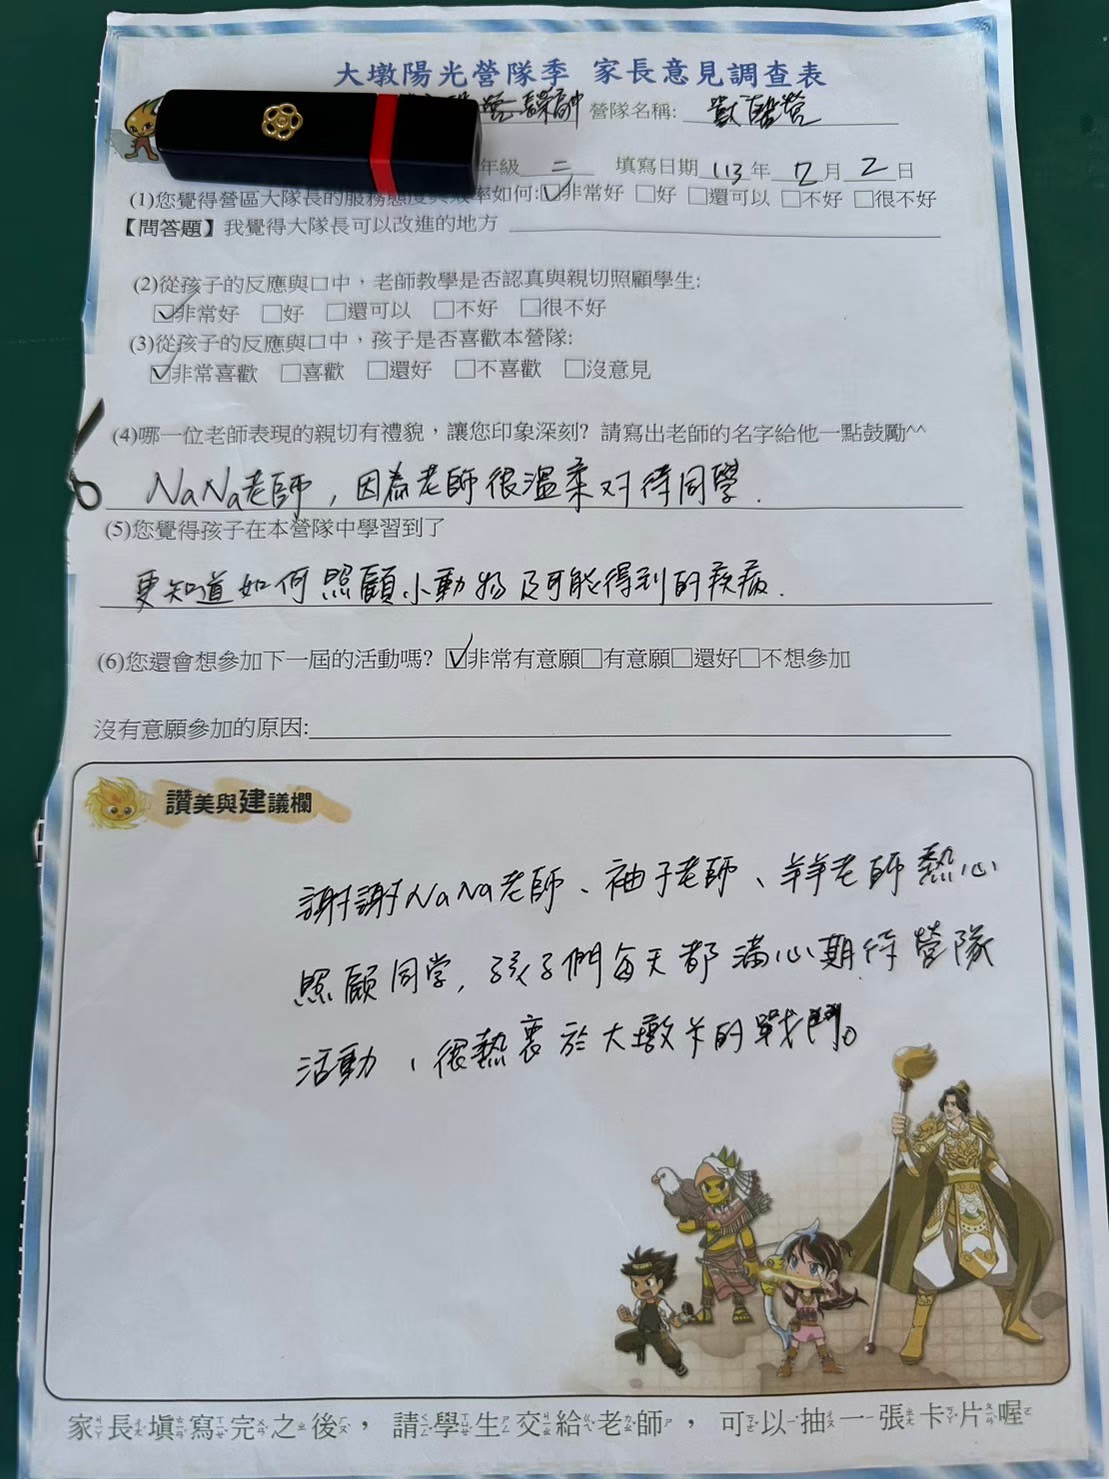 大墩陽光營隊季 家長意見調查表
營隊名稱: 獸醫營
年級 二 填寫日期 113年 12月 2日
(1)您覺得營區大隊長的服務態度與效率如何:☑非常好 □好 □還可以 □不好 □很不好
【問答題】我覺得大隊長可以改進的地方
(2)從孩子的反應與口中，老師教學是否認真與親切照顧學生:
☑非常好 □好 □還可以 □不好 □很不好
(3)從孩子的反應與口中，孩子是否喜歡本營隊:
☑非常喜歡 □喜歡 □還好 □不喜歡 □沒意見
(4)哪一位老師表現的親切有禮貌，讓您印象深刻? 請寫出老師的名字給他一點鼓勵^^
NaNa老師，因為老師很溫柔对待同學.
(5)您覺得孩子在本營隊中學習到了
更知道如何照顧小動物及可能得到的疾病.
(6)您還會想參加下一屆的活動嗎? ☑非常有意願□有意願□還好□不想參加
沒有意願參加的原因:
讚美與建議欄
謝謝NaNa老師、柚子老師、羊羊老師熱心
照顧同学,孩子們每天都滿心期待營隊
活動，很熱衷於大墩卡的戰鬥。
家長填寫完之後，請學生交給老師，可以抽一張卡片喔